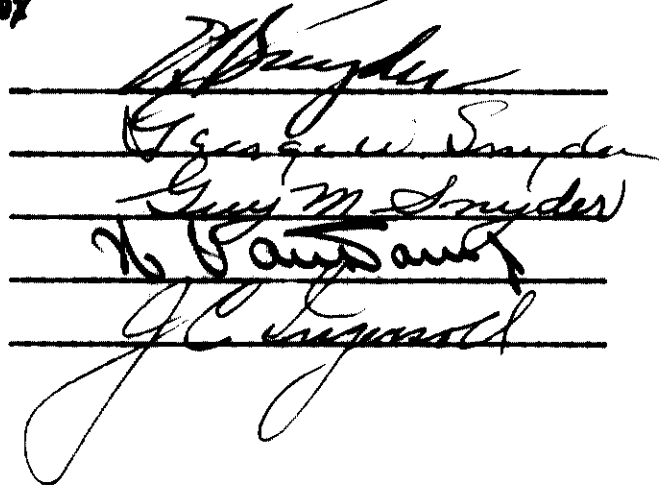 Snyder
George W. Snyder
Guy M Snyder
J C Ingersoll